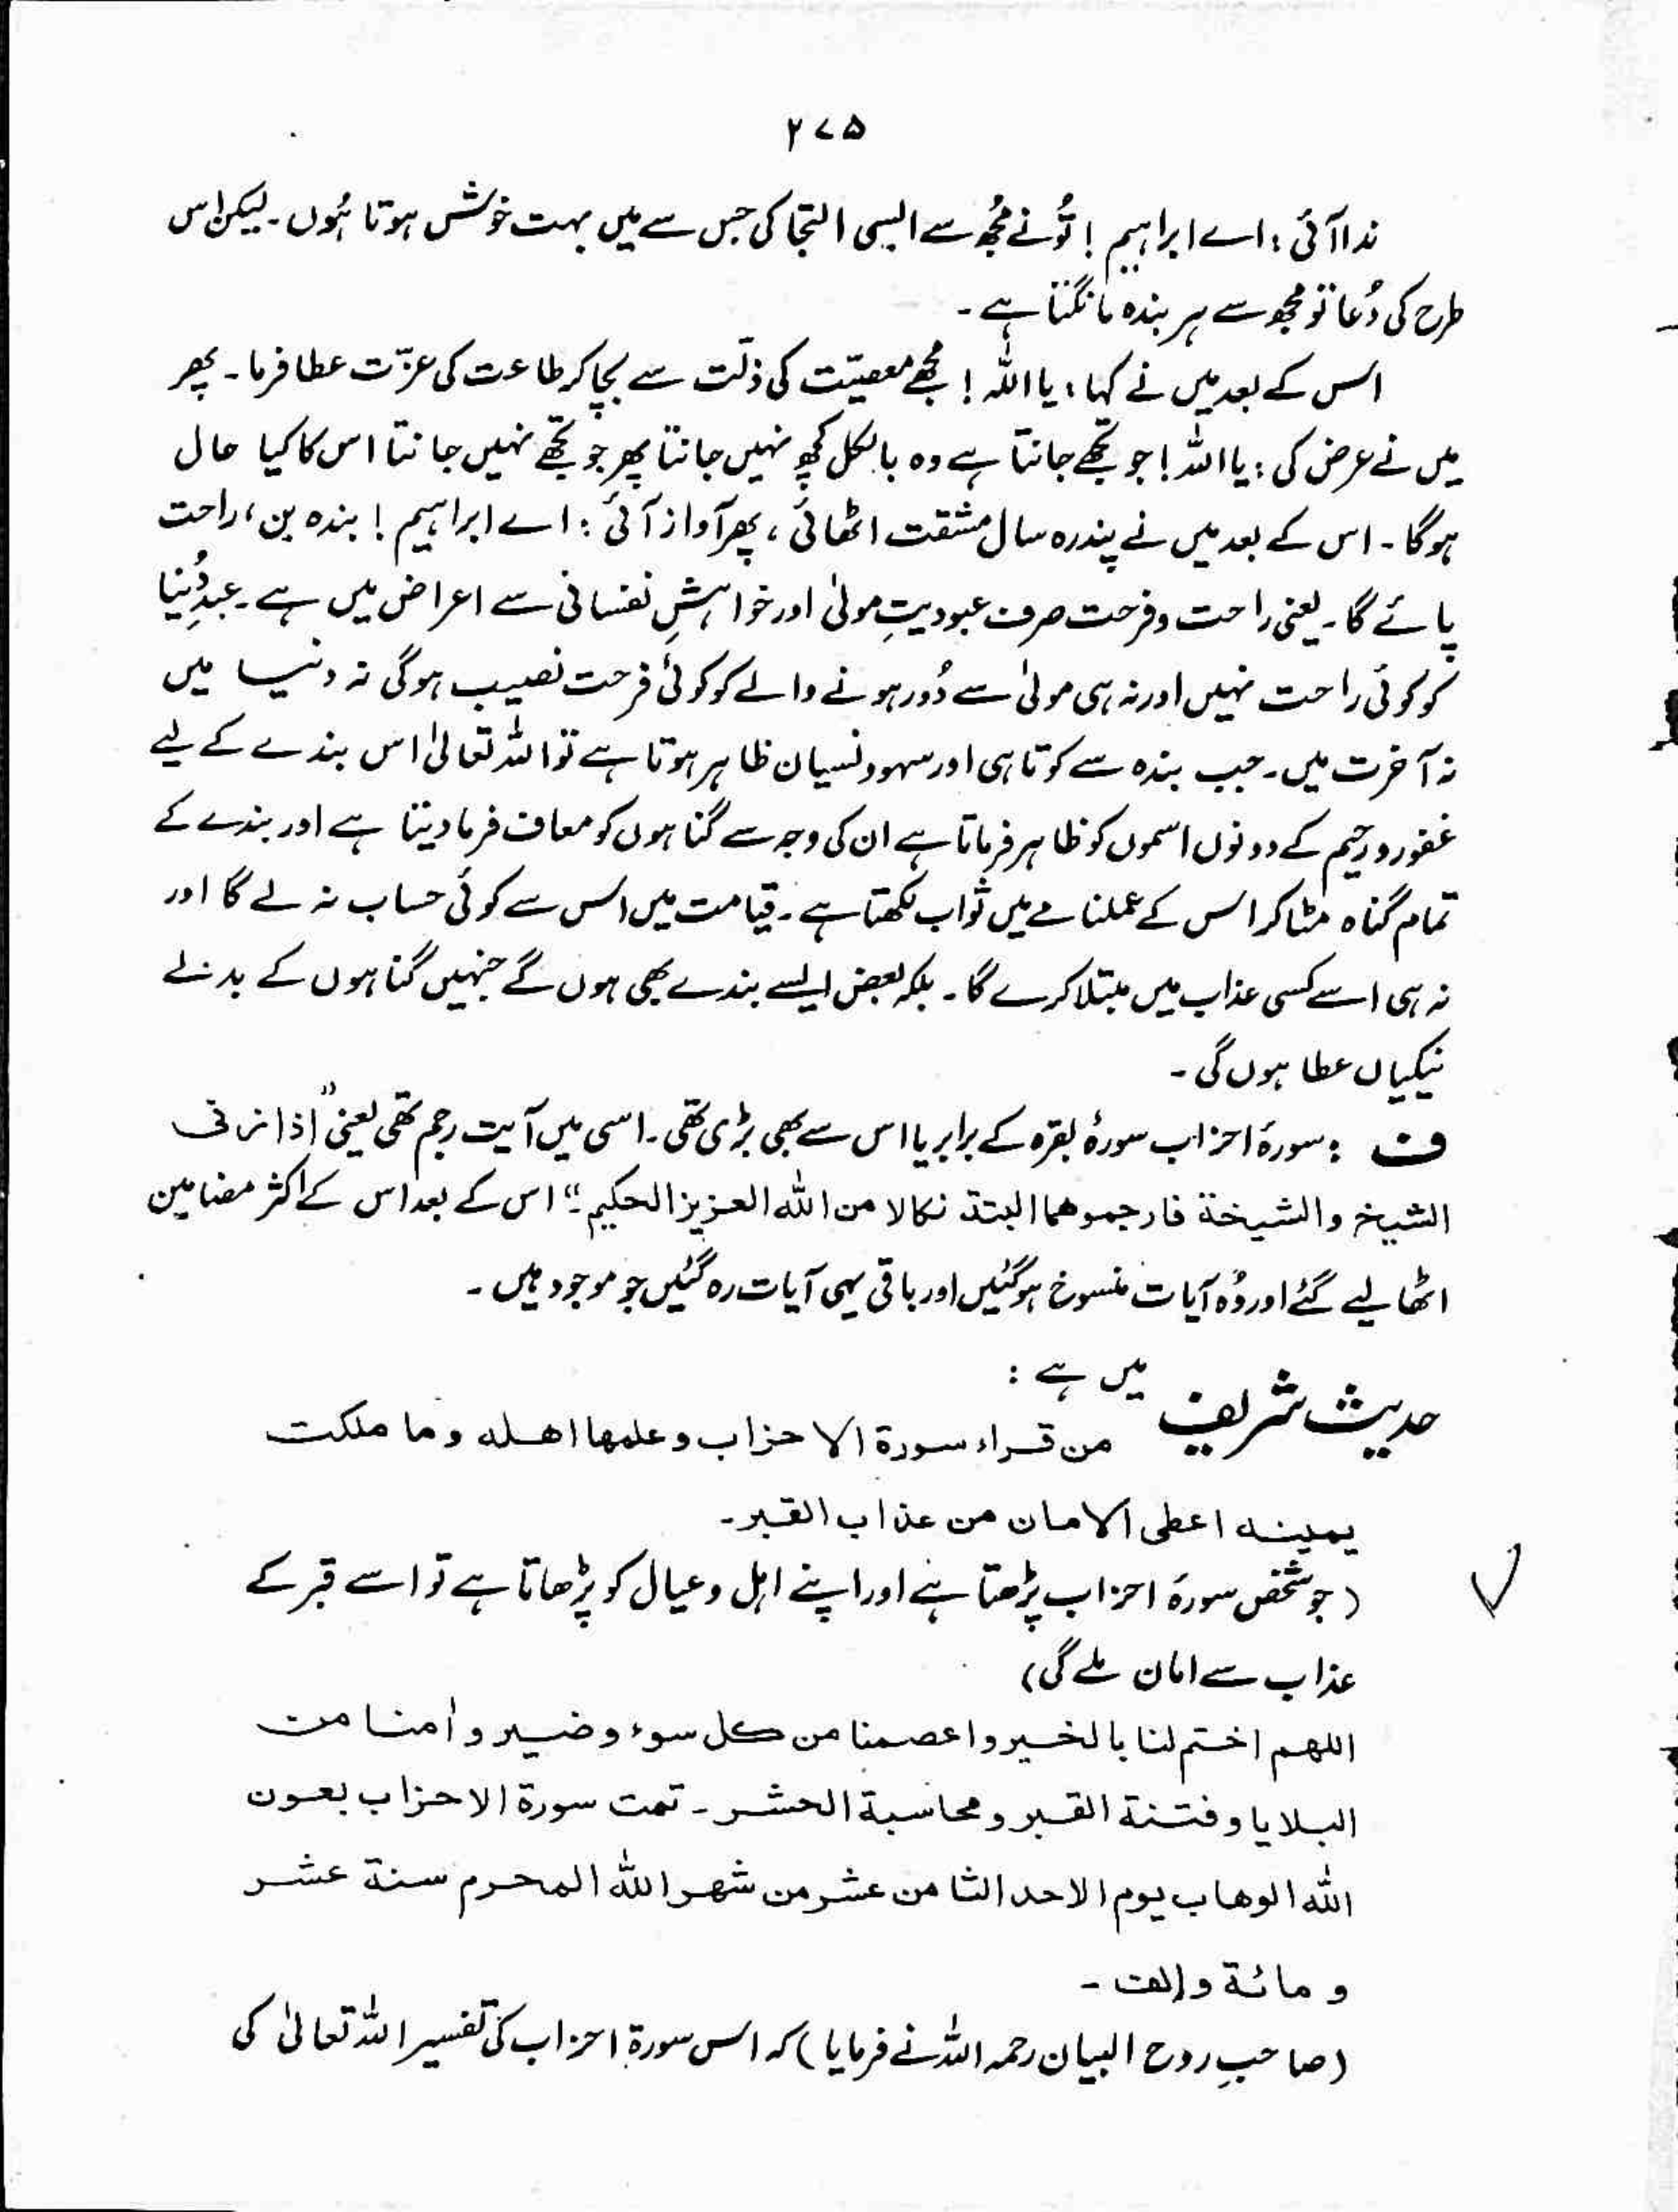 ۲۷۵
ندا آئی : اے ابراہیم ! تُو نے مجُھ سے ایسی التجا کی جس سے میں بہت خوش ہوتا ہُوں ۔ لیکن اس
طرح کی دُعا تو مجھ سے ہر بندہ مانگتا ہے ۔
اس کے بعد میں نے کہا : یا اللہ ! مجھے معصیّت کی ذلّت سے بچا کر طاعت کی عزّت عطا فرما ۔ پھر
میں نے عرض کی : یا اللہ ! جو تجھے جانتا ہے وہ بالکل کچھ نہیں جانتا پھر جو تجھے نہیں جانتا اس کا کیا حال
ہوگا ۔ اس کے بعد میں نے پندرہ سال مشقت اٹھائی ، پھر آواز آئی : اے ابراہیم ! بندہ بن ، راحت
پائے گا ۔ یعنی راحت و فرحت صرف عبودیتِ مولیٰ اور خواہشِ نفسانی سے اعراض میں ہے ۔ عبدِ دُنیا
کو کوئی راحت نہیں اور نہ ہی مولیٰ سے دُور ہونے والے کو کوئی فرحت نصیب ہوگی نہ دنیا میں
نہ آخرت میں ۔ جب بندہ سے کوتاہی اور سہو و نسیان ظاہر ہوتا ہے تو اللہ تعالیٰ اس بندے کے لیے
غفور و رحیم کے دونوں اسموں کو ظاہر فرماتا ہے ان کی وجہ سے گناہوں کو معاف فرما دیتا ہے اور بندے کے
تمام گناہ مٹا کر اس کے عملنامے میں ثواب لکھتا ہے ۔ قیامت میں اس سے کوئی حساب نہ لے گا اور
نہ ہی اسے کسی عذاب میں مبتلا کرے گا ۔ بلکہ بعض ایسے بندے بھی ہوں گے جنہیں گناہوں کے بدلے
نیکیاں عطا ہوں گی ۔
ف : سورۂ احزاب سورۂ بقرہ کے برابر یا اس سے بھی بڑی تھی ۔ اسی میں آیت رجم تھی یعنی "اذا زنی
الشیخ والشیخة فارجموهما البتة نکالا من الله العزیز الحکیم" اس کے بعد اس کے اکثر مضامین
اٹھا لیے گئے اور وُہ آیات منسوخ ہو گئیں اور باقی یہی آیات رہ گئیں جو موجود ہیں ۔
حدیث شریف میں ہے :
من قراء سورة الاحزاب و علمها اهله و ما ملکت
یمینه اعطی الامان من عذاب القبر ۔
( جو شخص سورۂ احزاب پڑھتا ہے اور اپنے اہل و عیال کو پڑھاتا ہے تو اسے قبر کے
عذاب سے امان ملے گی )
اللهم اختم لنا بالخیر و اعصمنا من کل سوء و ضیر و اٰمنا من
البلایا و فتنة القبر و محاسبة الحشر ۔ تمت سورة الاحزاب بعون
الله الوهاب یوم الاحد الثامن عشر من شهر الله المحرم سنة عشر
و مائة و الف ۔
( صاحبِ روح البیان رحمہ اللہ نے فرمایا ) کہ اس سورۃ احزاب کی تفسیر اللہ تعالیٰ کی